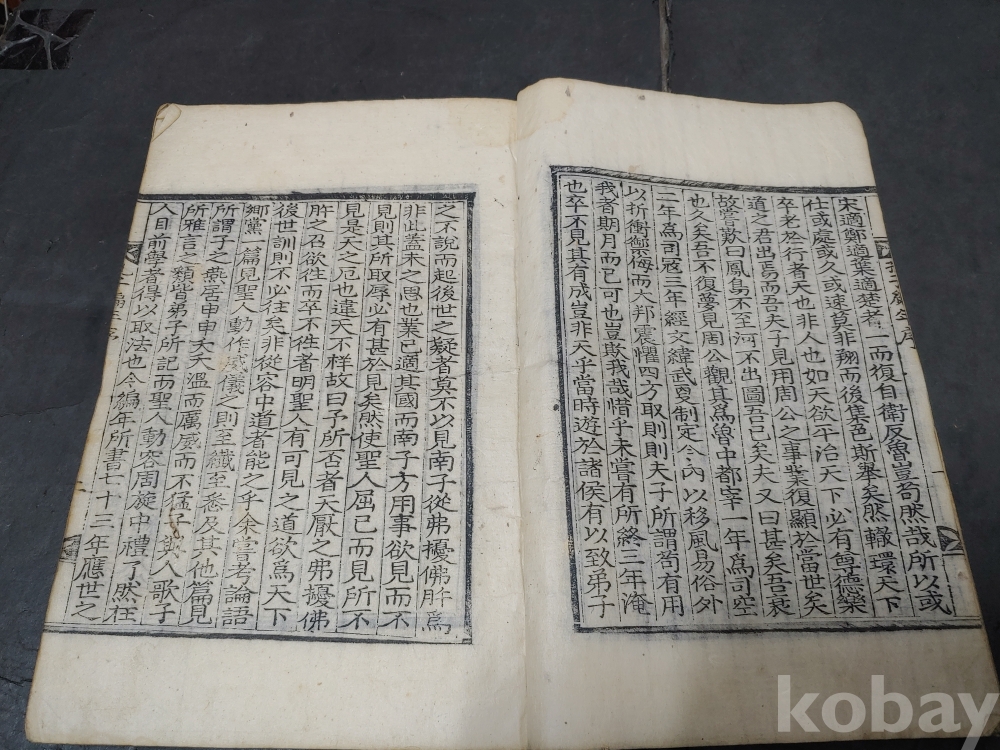 宋適鄭適蔡適楚者一而復自衛反魯豈苟然哉所以或
仕或處或久或速莫非翔而後集色斯擧矣然轍環天下
卒老於行者天也非人也如天欲平治天下必有尊德樂
道之君出焉而吾夫子見用周公之事業復顯於當世矣
故嘗歎曰鳳鳥不至河不出圖吾已矣夫又曰甚矣吾衰
也久矣吾不復夢見周公觀其爲魯中都宰一年爲司空
二年爲司寇三年經文緯武更制定令內以移風易俗外
以折衝禦侮而大邦震懼四方取則則夫子所謂苟有用
我者期月而已可也豈欺我哉惜乎未嘗有所終三年淹
也卒不見其有成豈非天乎當時遊於諸侯有以致弟子
之不說而起後世之疑者莫不以見南子從弗擾佛肸爲
非此蓋未之思也業已適其國而南子方用事欲見而不
見則其所取辱必有甚於見矣然使聖人屈己而見所不
見是天之厄也違天不祥故曰予所否者天厭之弗擾佛
肸之召欲徃而卒不徃者明聖人有可見之道欲爲天下
後世訓則不必往矣非從容中道者能之乎余嘗考論語
鄉黨一篇見聖人動作威儀之則至纖至悉及其他篇見
所謂子之燕居申申夭夭溫而厲威而不猛子與人歌子
所雅言之類皆弟子所記而聖人動容周旋中禮了然在
人目前學者得以取法也今編年所書七十三年應世之